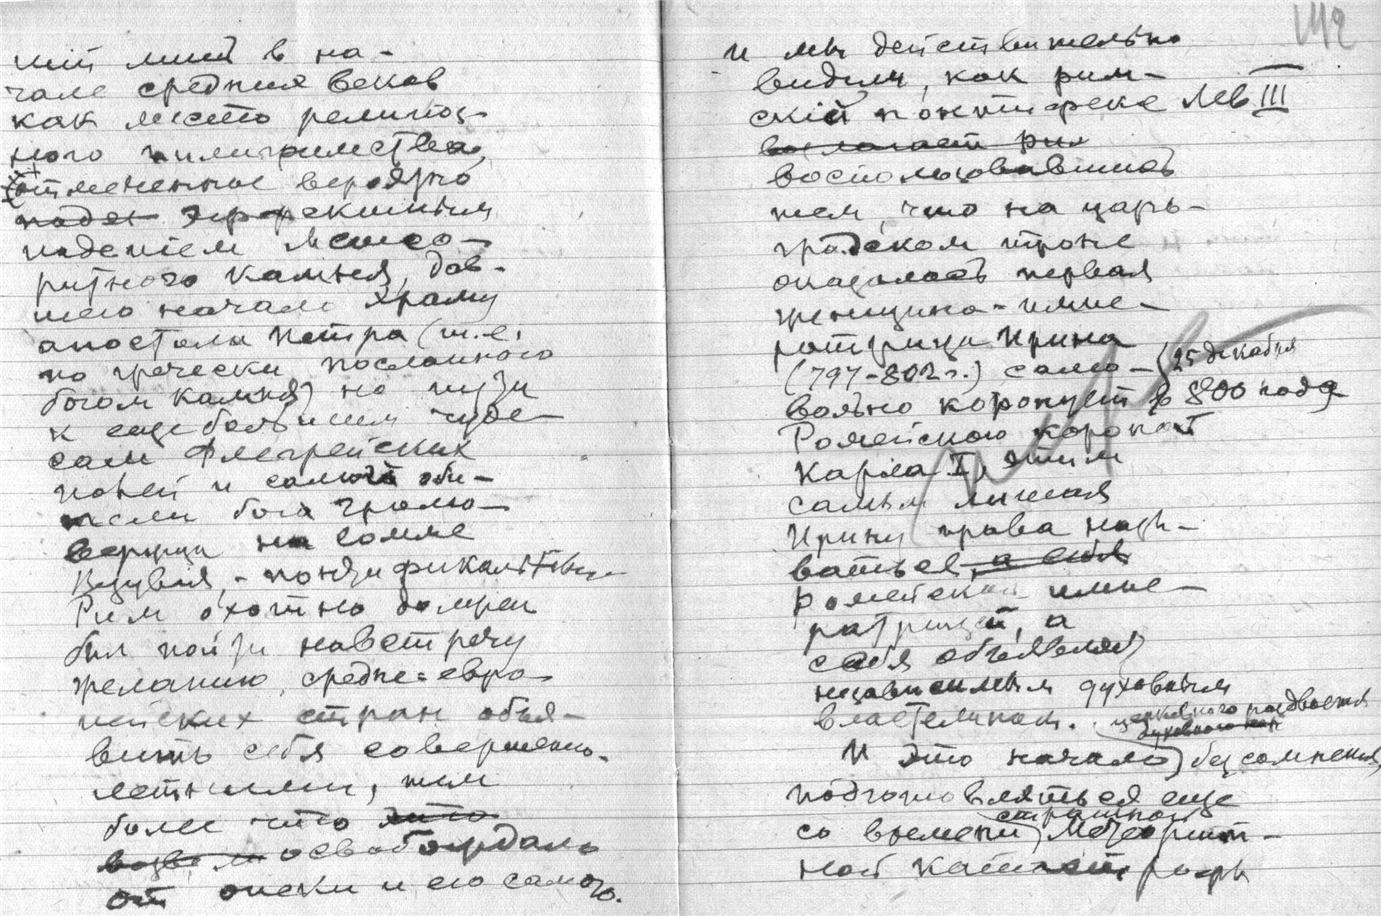 ший миѳ в на-
чале средних веков
как место религиоз-
ного пилигримства,
отмеченное вероятно
эффектным
падением Метео-
ритного камня, дав-
шего начало храму
апостола Петра (т.е.
по гречески посланного
богом камня) но и
к еще большим чуде-
сам Флегрейских
полей и самой оби-
тели бога громо-
вержца на Сомме
Везувия, - понтификальный
Рим охотно должен
был пойти навстречу
желанию средне-евро-
пейских стран объя-
вить себя совершенно-
летними, тем
более что это
освобождало
от опеки и его самого.
и мы действительно
видим, как рим-
скій понтифекс Лев III
возлагает рим
воспользовавшись
тем что на царь-
градском троне
оказалась первая
женщина-импе-
ратрица Ирина
(797-802 г.) само- 25 декабря
вольно коронует в 800 году
Ромейскою короной
Карла I, этим
самым лишая
Ирину права назы-
ваться, а себя
ромейской импе-
ратрицей, а
себя объявляя
независимым духовным
властелином. церковного раздвоения
И это начало без сомнения,
подготовляться еще
страшной
со времени Метеорит-
ной катастрофы